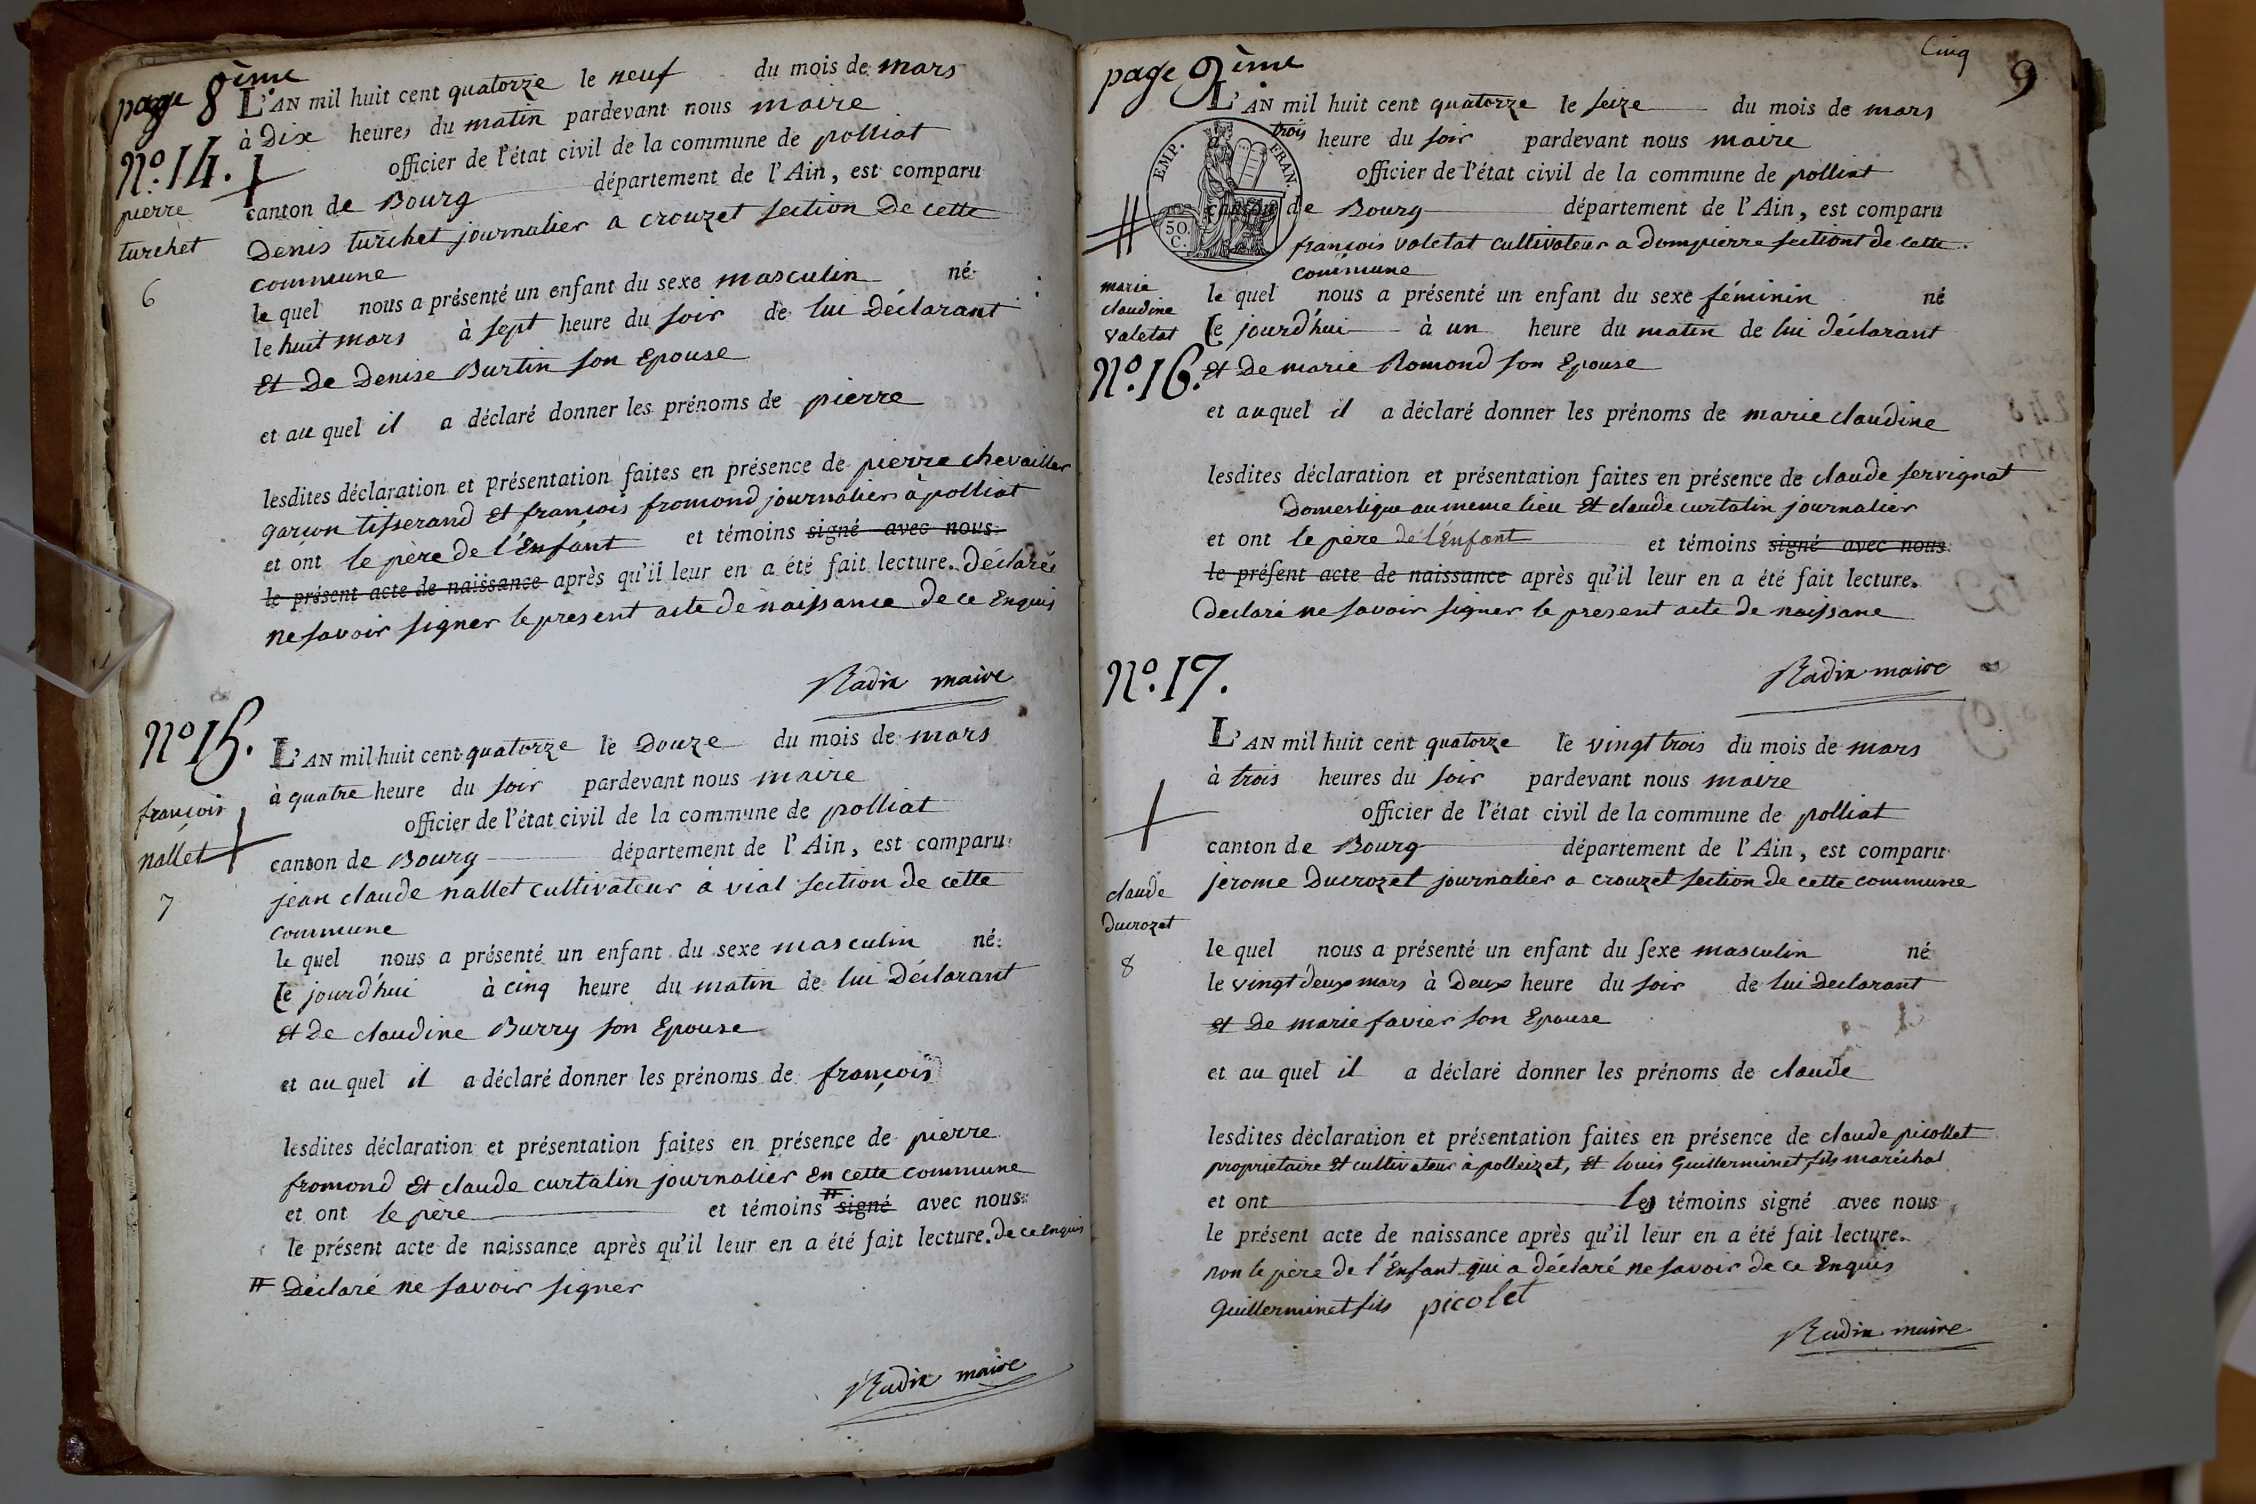 page 8ème
L'AN mil huit cent quatorze le neuf du mois de mars
à Dix heures du matin pardevant nous maire
officier de l'état civil de la commune de polliat
canton de Bourg département de l'Ain, est comparu
Denis turchet journalier a crouzet section De cette
commune
le quel nous a présenté un enfant du sexe masculin né
le huit mars à sept heure du soir de lui Déclarant
Et De Denise Burtin son Epouse
et au quel il a déclaré donner les prénoms de pierre
lesdites déclaration et présentation faites en présence de pierre chevailler
garçon tisserand Et françois fromond journalier à polliat
et ont le père De l'Enfant et témoins signé avec nous
le présent acte de naissance après qu'il leur en a été fait lecture. Déclaré
ne savoir signer le present acte de naissance de ce Enquis
Radix maire
No. 14.
pierre
turchet
6
No 15.
L'AN mil huit cent quatorze le Douze du mois de mars
à quatre heure du soir pardevant nous maire
officier de l'état civil de la commune de polliat
canton de Bourg département de l'Ain, est comparu
jean claude nallet cultivateur à vial section de cette
commune
le quel nous a présenté un enfant du sexe masculin né
Ce jourd'hui à cinq heure du matin de lui Déclarant
Et De claudine Burry son Epouse
et au quel il a déclaré donner les prénoms de françois
lesdites déclaration et présentation faites en présence de pierre
fromond Et claude curtalin journalier En cette commune
et ont le père et témoins # signé avec nous
le présent acte de naissance après qu'il leur en a été fait lecture. de ce Enquis
# Déclaré ne savoir signer
Radix maire
françois
nallet
7
page 9ème
Cinq
9
L'AN mil huit cent quatorze le seize du mois de mars
à trois heure du soir pardevant nous maire
officier de l'état civil de la commune de polliat
canton de Bourg département de l'Ain, est comparu
françois valetat cultivateur a dompierre sectiont de cette
commune
le quel nous a présenté un enfant du sexe féminin né
Ce jourd'hui à un heure du matin de lui déclarant
Et De marie Romond son Epouse
et auquel il a déclaré donner les prénoms de marie claudine
lesdites déclaration et présentation faites en présence de claude servignat
Domestique au meme lieu Et claude curtalin journalier
et ont le père de l'Enfant et témoins signé avec nous
le présent acte de naissance après qu'il leur en a été fait lecture.
Declaré ne savoir signer le present acte de naissane
Radix maire
EMP. FRAN.
50. C.
#
marie
claudine
valetat
No. 16.
No. 17.
L'AN mil huit cent quatorze le vingt trois du mois de mars
à trois heures du soir pardevant nous maire
officier de l'état civil de la commune de polliat
canton de Bourg département de l'Ain, est comparu
jerome Ducrozet journalier a crouzet section De cette commune
le quel nous a présenté un enfant du sexe masculin né
le vingt deux mars à Deux heure du soir de lui Declarant
Et De marie favier son Epouse
et au quel il a déclaré donner les prénoms de claude
lesdites déclaration et présentation faites en présence de claude picollet
proprietaire Et cultivateur à polleizet, Et louis Guillerminet fils maréchal
et ont les témoins signé avec nous
le présent acte de naissance après qu'il leur en a été fait lecture.
non le père de l'Enfant qui a déclaré ne savoir de ce Enquis
Guillerminet fils picolet
Radix maire
claude
Ducrozet
8